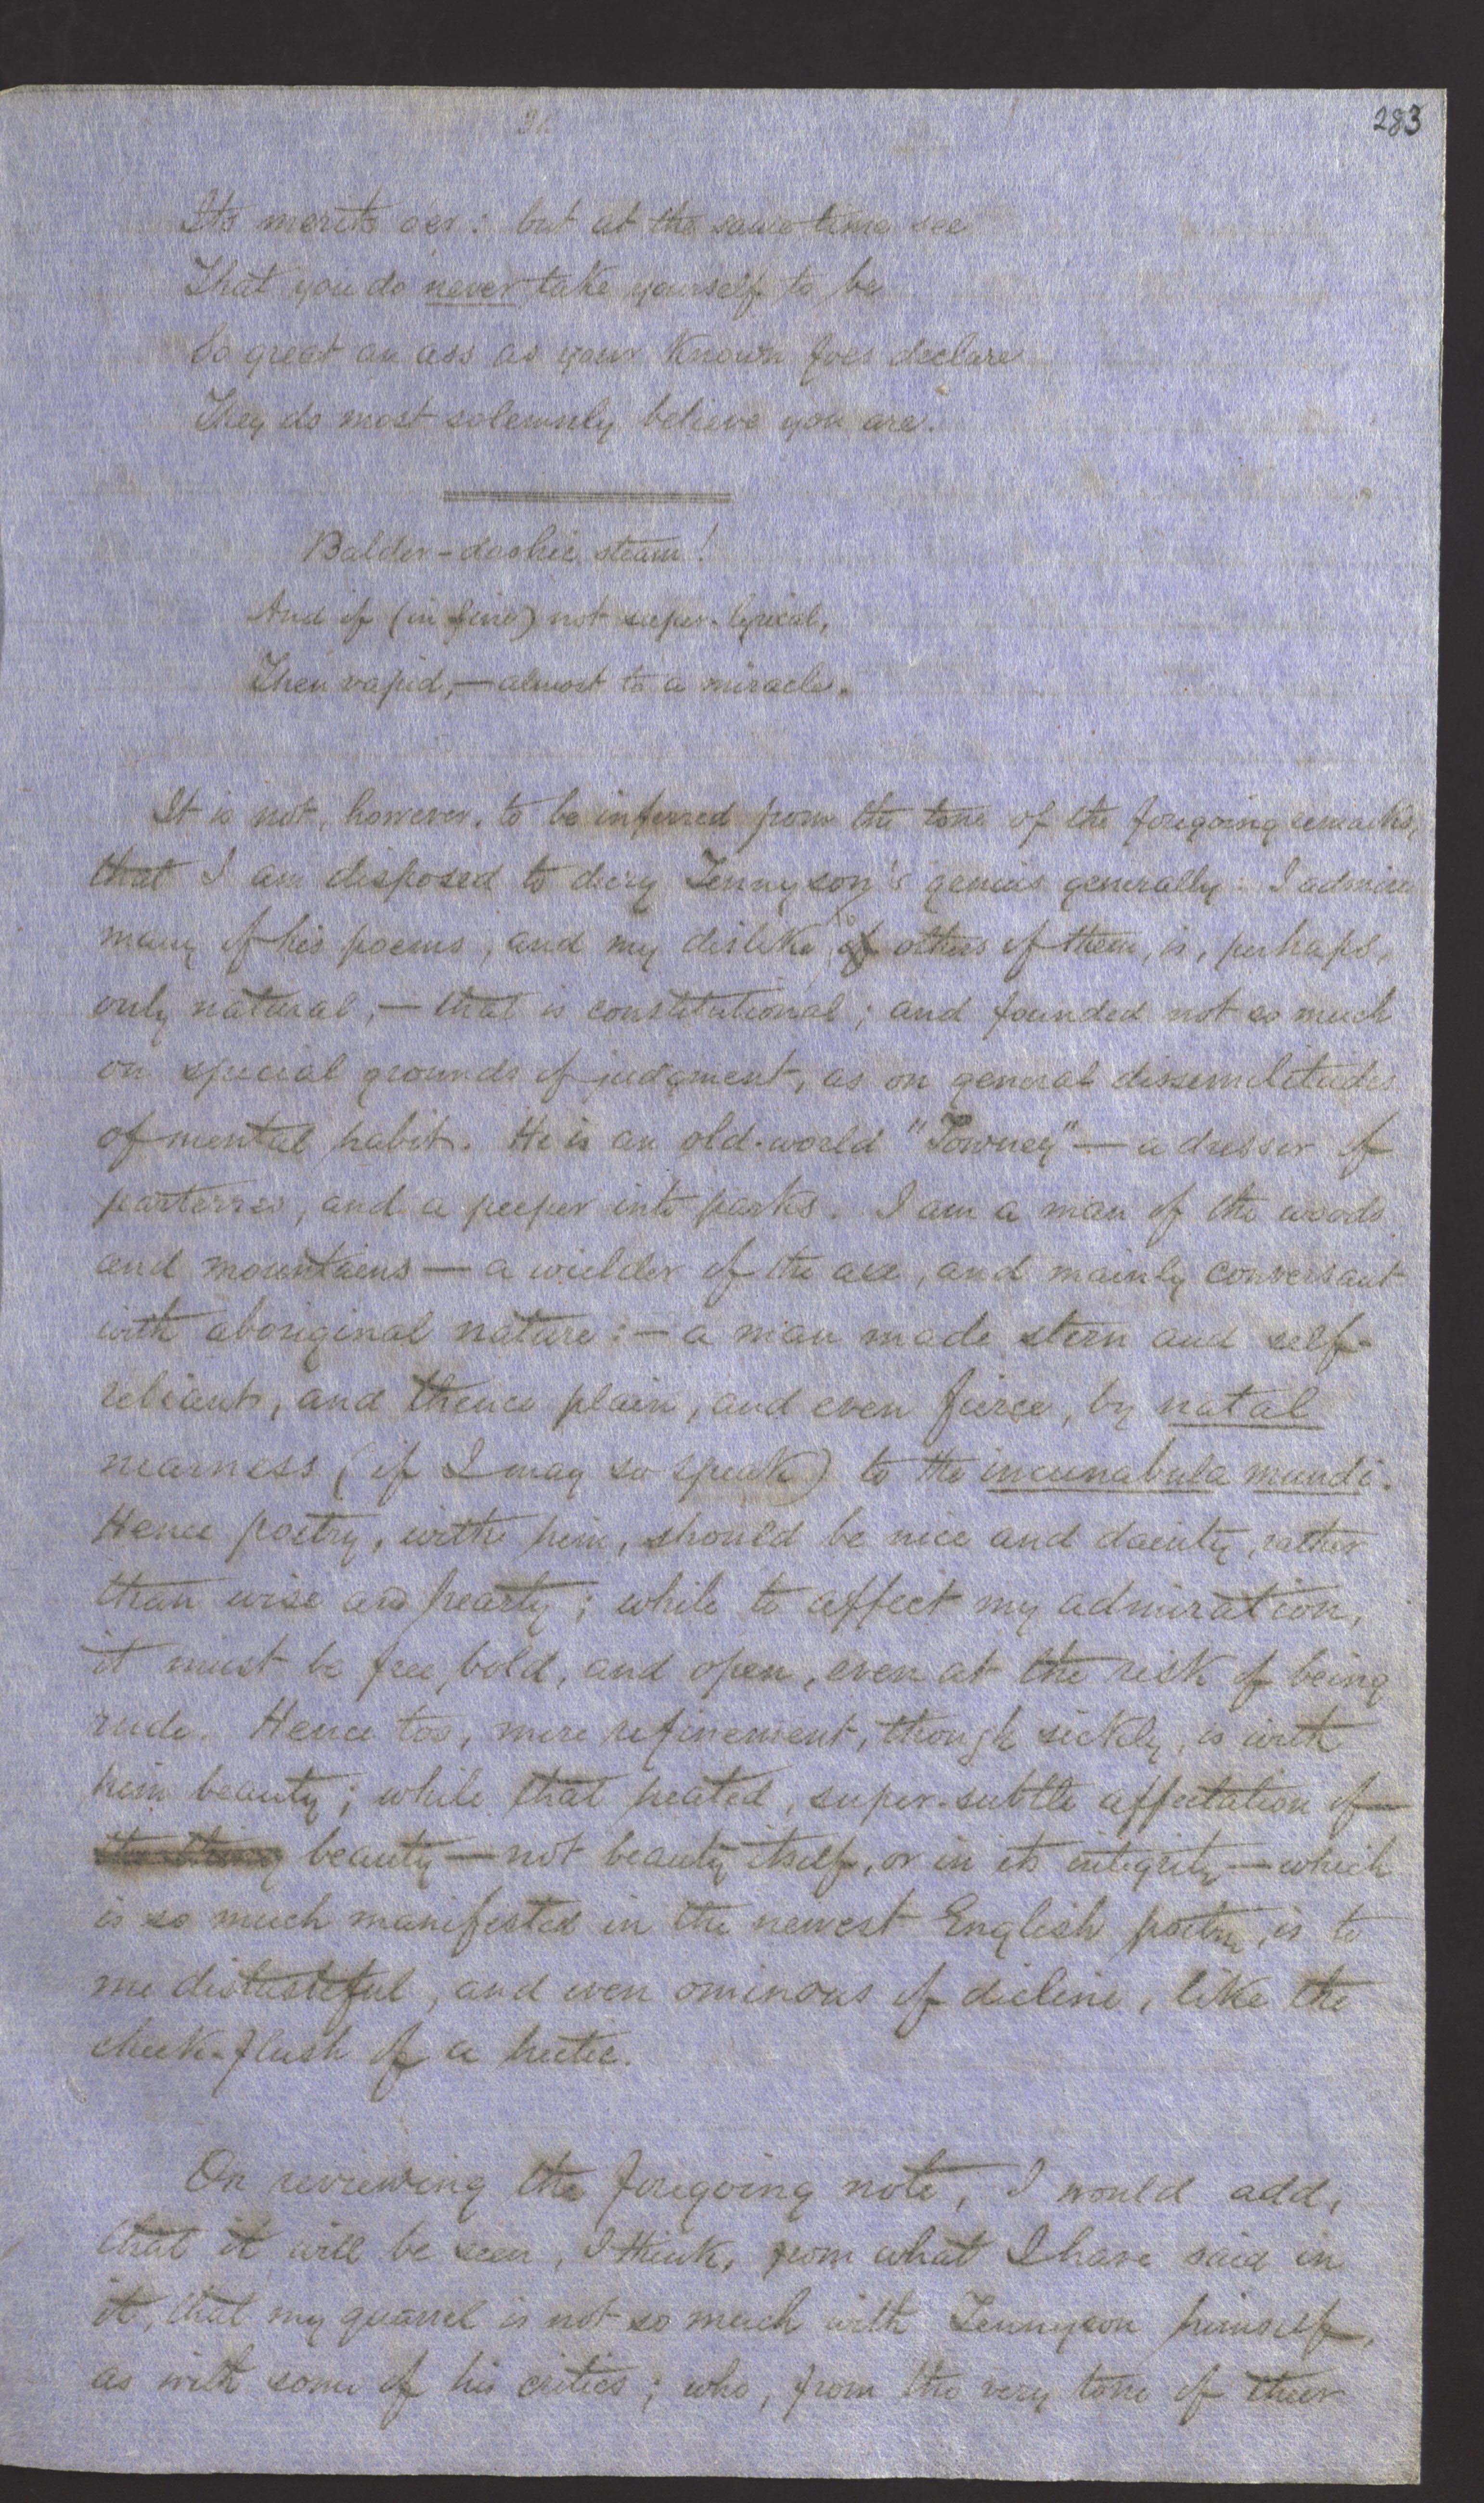 283
Its merits o'er: but at the same time see
That you do never take yourself to be
So great an ass as your known foes declare
They do most solemnly believe you are.
Balder-dashic steam!
And if (in fine) not super-lyrical,
Then vapid,—almost to a miracle.
It is not, however, to be inferred from the tone of the foregoing remarks,
that I am disposed to decry Tennyson's genius generally. I admire
many of his poems, and my dislike to others of them, is, perhaps,
only natural,—that is constitutional; and founded not so much
on special grounds of judgment, as on general dissimilitudes
of mental habit. He is an old-world "Towney"—a dresser of
parterres, and a peeper into parks. I am a man of the woods
and mountains—a wielder of the axe, and mainly conversant
with aboriginal nature:—a man made stern and self-
reliant, and thence plain, and even fierce, by natal
nearness (if I may so speak) to the incunabula mundi.
Hence poetry, with him, should be nice and dainty, rather
than wise and hearty; while to affect my admiration,
it must be free, bold, and open, even at the risk of being
rude. Hence too, mere refinement, though sickly, is with
him beauty; while that heated, super-subtle affectation of
beauty—not beauty itself, or in its integrity—which
is so much manifested in the newest English poetry, is to
me distasteful, and even ominous of decline, like the
cheek-flush of a hectic.
On reviewing the foregoing note, I would add,
that it will be seen, I think, from what I have said in
it, that my quarrel is not so much with Tennyson himself,
as with some of his critics; who, from the very tone of their